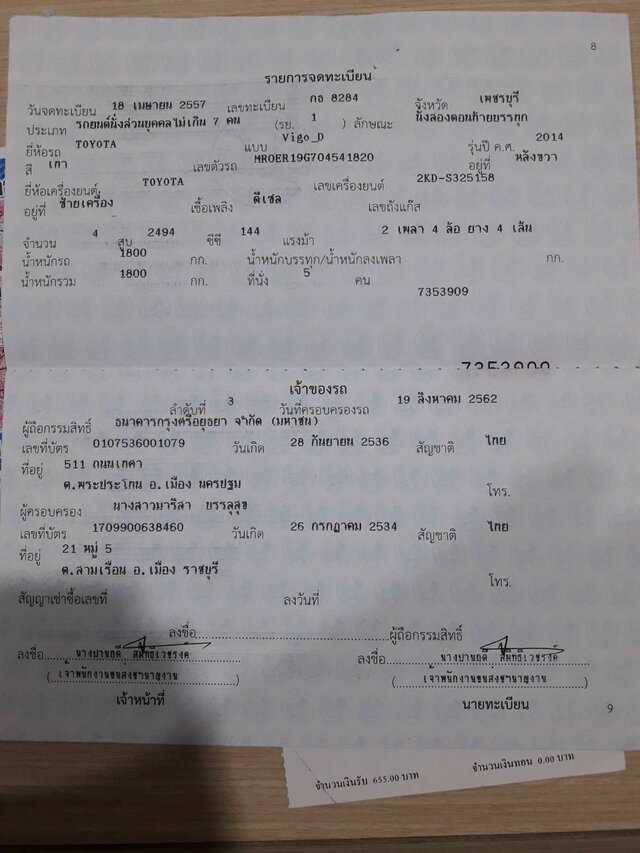 8
รายการจดทะเบียน
วันจดทะเบียน 18 เมษายน 2557 เลขทะเบียน กอ 8284 จังหวัด เพชรบุรี
ประเภท รถยนต์นั่งส่วนบุคคลไม่เกิน 7 คน (รย. 1 ) ลักษณะ นั่งสองตอนท้ายบรรทุก
ยี่ห้อรถ TOYOTA แบบ Vigo_D รุ่นปี ค.ศ. 2014
สี เทา เลขตัวรถ MROER19G704541820 อยู่ที่ หลังขวา
ยี่ห้อเครื่องยนต์ TOYOTA เลขเครื่องยนต์ 2KD-S325158
อยู่ที่ ซ้ายเครื่อง เชื้อเพลิง ดีเซล เลขถังแก๊ส
จำนวน 4 สูบ 2494 ซีซี 144 แรงม้า 2 เพลา 4 ล้อ ยาง 4 เส้น
น้ำหนักรถ 1800 กก. น้ำหนักบรรทุก/น้ำหนักลงเพลา กก.
น้ำหนักรวม 1800 กก. ที่นั่ง 5 คน
7353909
7353909
เจ้าของรถ
ลำดับที่ 3 วันที่ครอบครองรถ 19 สิงหาคม 2562
ผู้ถือกรรมสิทธิ์ ธนาคารกรุงศรีอยุธยา จำกัด (มหาชน)
เลขที่บัตร 0107536001079 วันเกิด 28 กันยายน 2536 สัญชาติ ไทย
ที่อยู่ 511 ถนนเทศา
ต.พระประโทน อ.เมือง นครปฐม โทร.
ผู้ครอบครอง นางสาวมาริสา บรรลุสุข
เลขที่บัตร 1709900638460 วันเกิด 26 กรกฎาคม 2534 สัญชาติ ไทย
ที่อยู่ 21 หมู่ 5
ต.สามเรือน อ.เมือง ราชบุรี โทร.
สัญญาเช่าซื้อเลขที่ ลงวันที่
ลงชื่อ ผู้ถือกรรมสิทธิ์
ลงชื่อ ลงชื่อ
(เจ้าพนักงานขนส่งชำนาญงาน) (เจ้าพนักงานขนส่งชำนาญงาน)
เจ้าหน้าที่ นายทะเบียน
9
จำนวนเงินรับ 655.00 บาท จำนวนเงินทอน 0.00 บาท